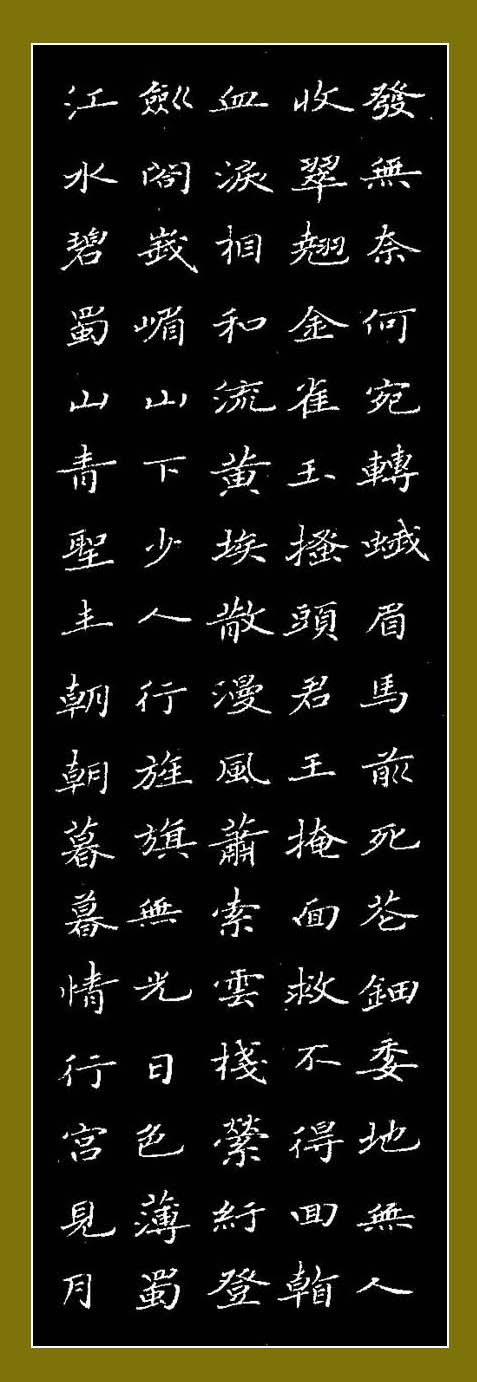 發無奈何宛轉蛾眉馬前死花鈿委地無人
收翠翹金雀玉搔頭君王掩面救不得回看
血淚相和流黃埃散漫風蕭索雲棧縈紆登
劍閣峨嵋山下少人行旌旗無光日色薄蜀
江水碧蜀山青聖主朝朝暮暮情行宮見月